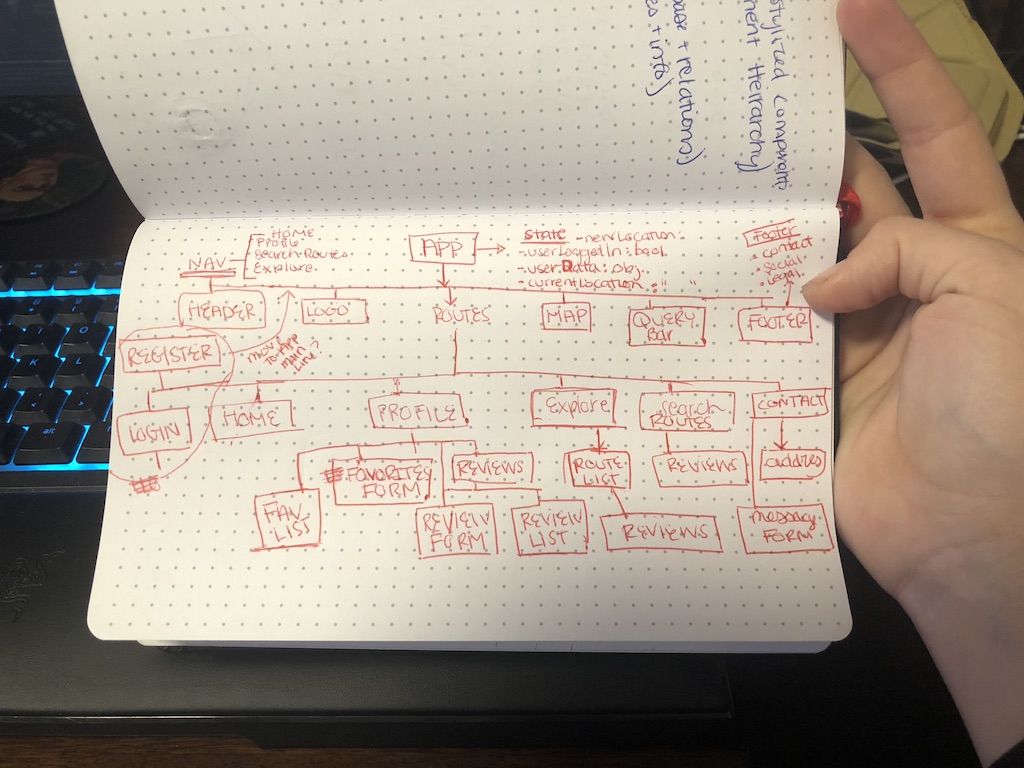 stylized component
ment Heirarchy)
base + relations)
es + info)
HOME
Profile
Search Routes
Explore
NAV
APP
state - new Location:
- userLoggedIn: bool
- user Data: obj
- currentLocation: " "
Footer
- contact
- social
- legal
HEADER
LOGO
ROUTES
MAP
QUERY
Bar
FOOTER
REGISTER
move
To App
main
line?
LOGIN
HOME
PROFILE
Explore
search
ROUTES
CONTACT
FAVORITES
FORM
REVIEWS
ROUTE
LIST
REVIEWS
address
FAV
LIST
REVIEW
FORM
REVIEW
LIST
REVIEWS
message
FORM